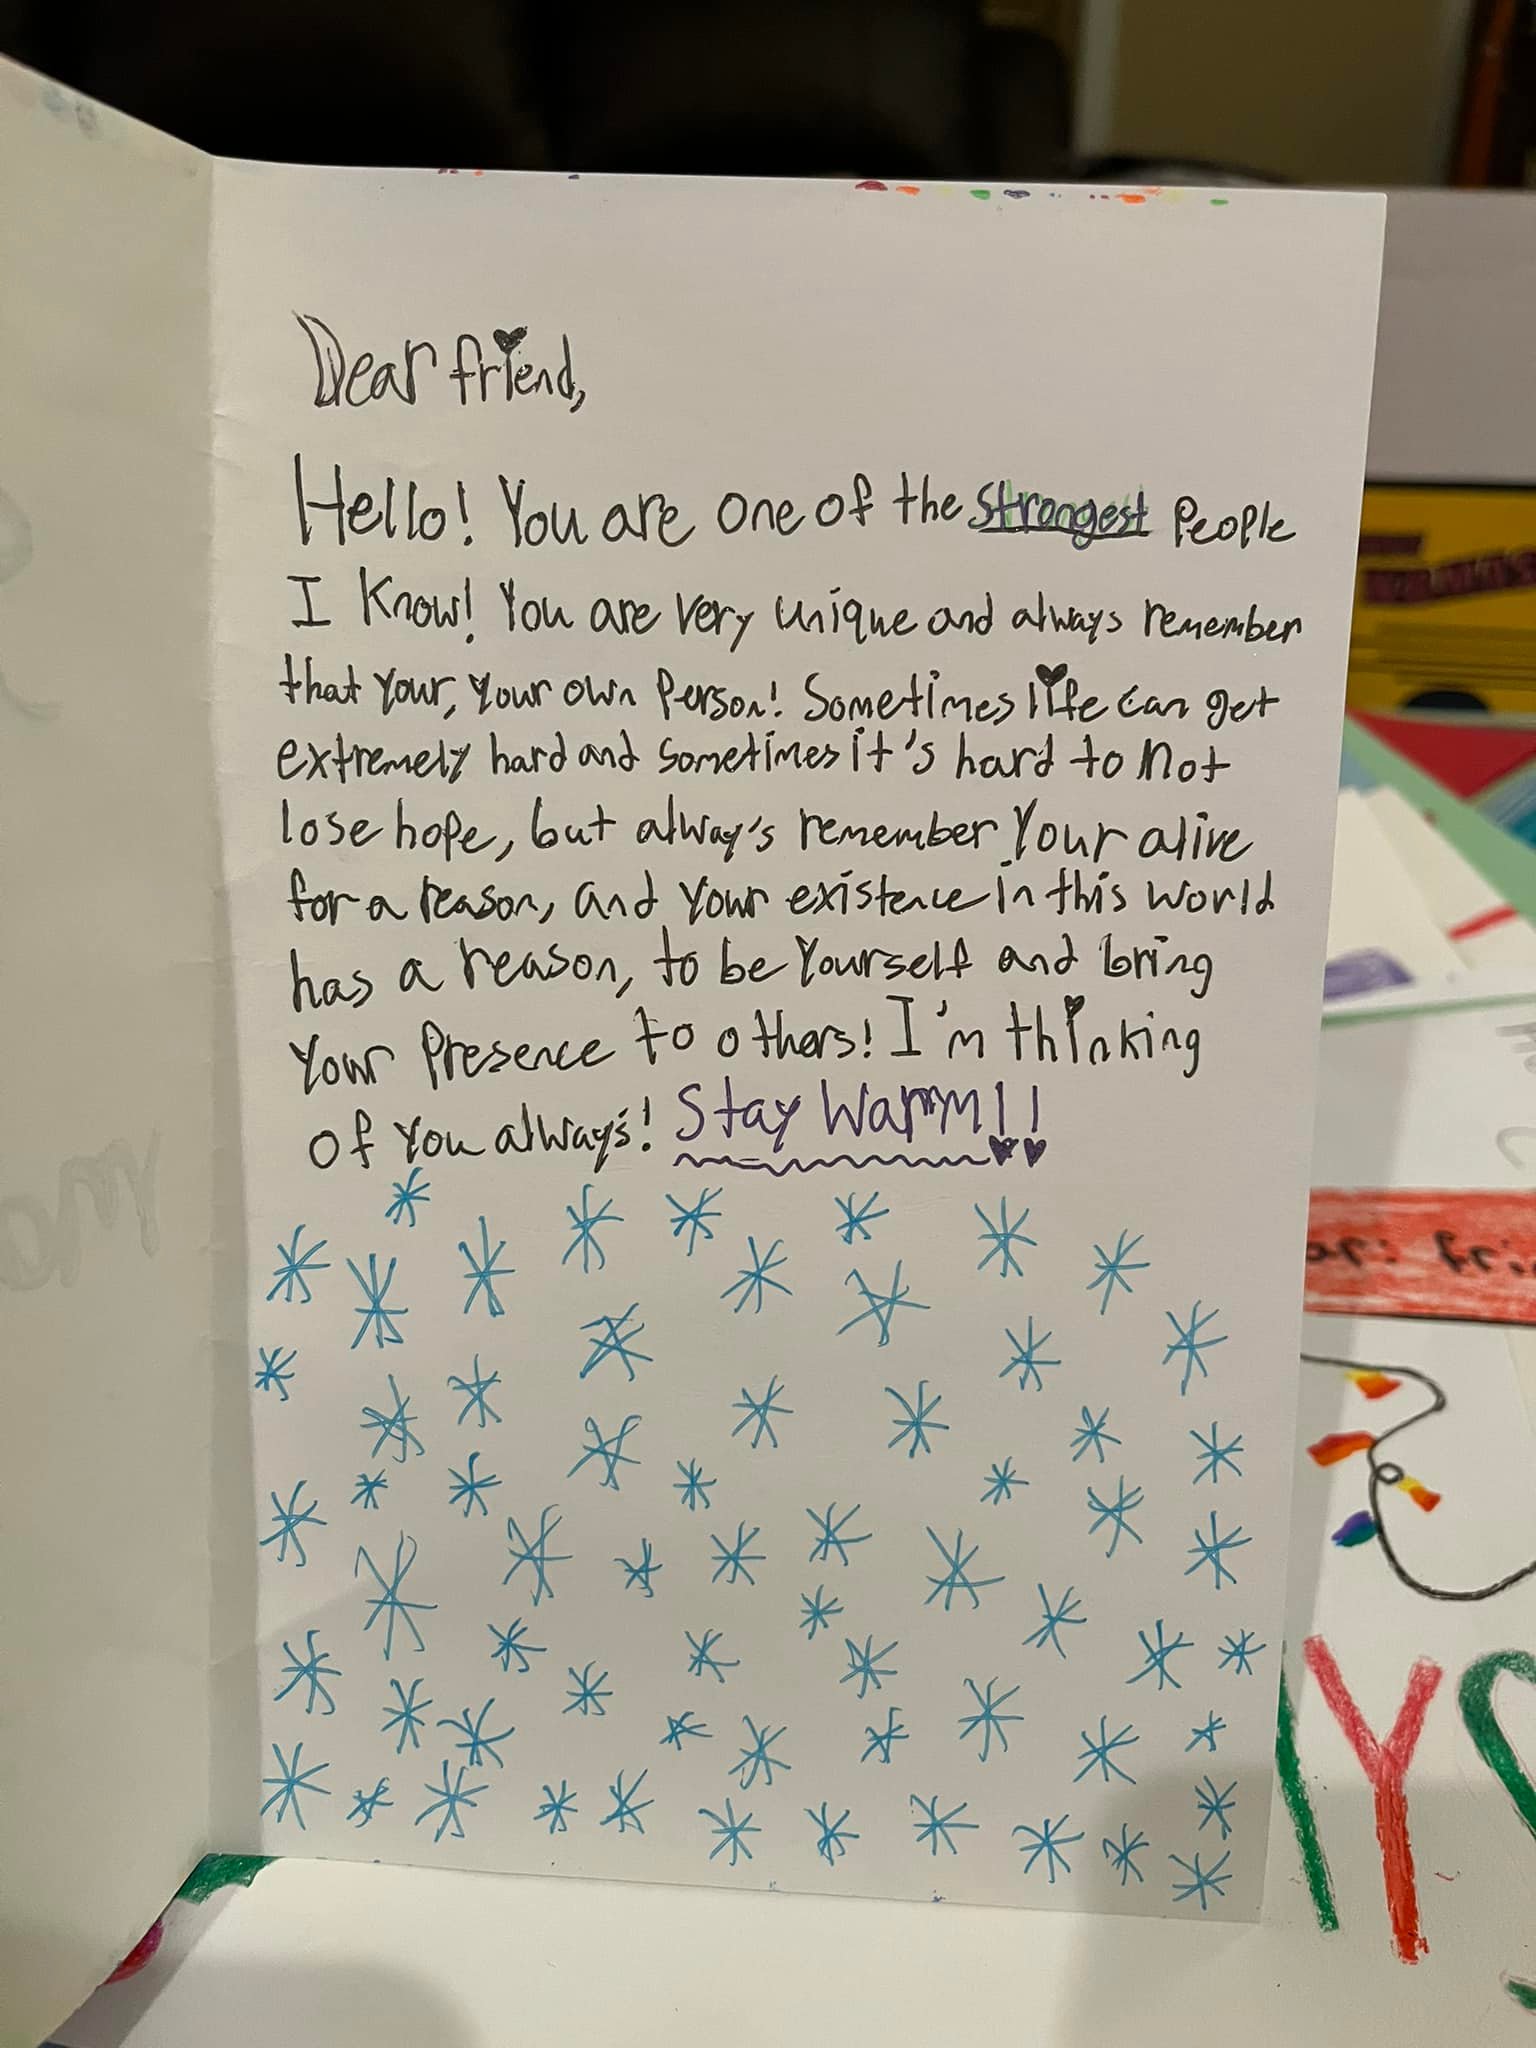 Dear friend,
Hello! You are one of the strongest People
I Know! You are very unique and always remember
that your, your own Person! Sometimes life can get
extremely hard and sometimes it's hard to not
lose hope, but alway's remember your alive
for a reason, and your existence in this world
has a reason, to be yourself and bring
your Presence to others! I'm thinking
of you always! Stay Warm!!